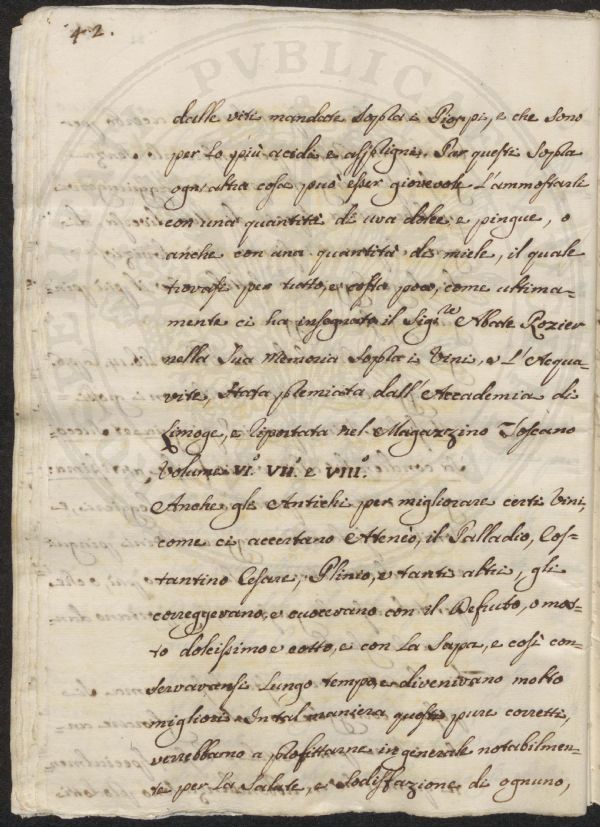 42.
dalle viti mandate sopra i Pioppi, e che sono
per lo più acidi e asprigni. Per questi sopra
ogn' altra cosa può esser giovevole l'ammostarli
con una quantità di uva dolce e pingue, o
anche con una quantità di miele, il quale
trovasi per tutto, e costa poco, come ultima-
mente ci ha insegnato il Sig.re Abate Rozier
nella sua memoria sopra i Vini, e l'Acqua-
vite, stata premiata dall'Accademia di
Limoge, e riportata nel Magazzino Toscano
Volume VI.° VII.° e VIII.°
Anche gli Antichi per migliorare certi Vini,
come ci accertano Ateneo, il Palladio, Cos-
tantino Cesare, Plinio, e tanti altri, gli
correggevano, e cuocevano con il Defruto, o mos-
to dolcissimo e cotto, e con la Sapa, e così con-
servavansi lungo tempo, e divenivano molto
migliori. In tal maniera questi pure corretti,
verrebbano a profittarne in generale notabilmen-
te per la Salute, e sodisfazione di ognuno,